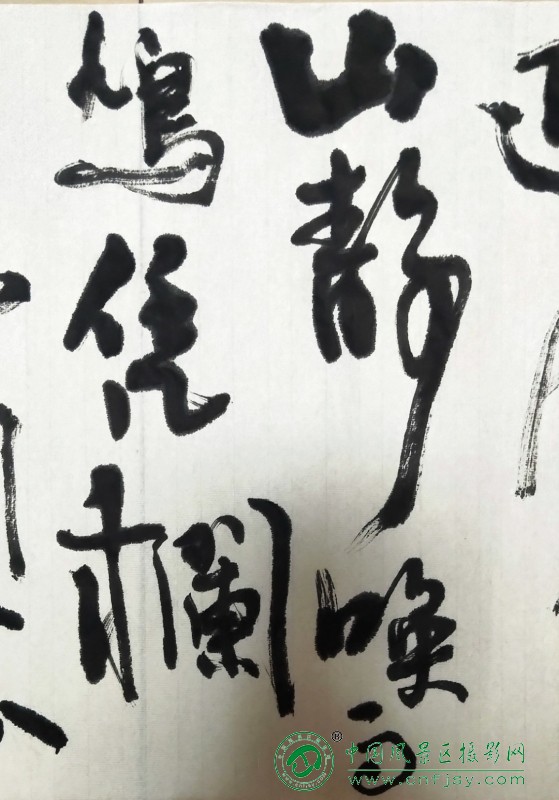 山静唤雨
鳩凭欄
中国风景区摄影网
www.cnfjsy.com